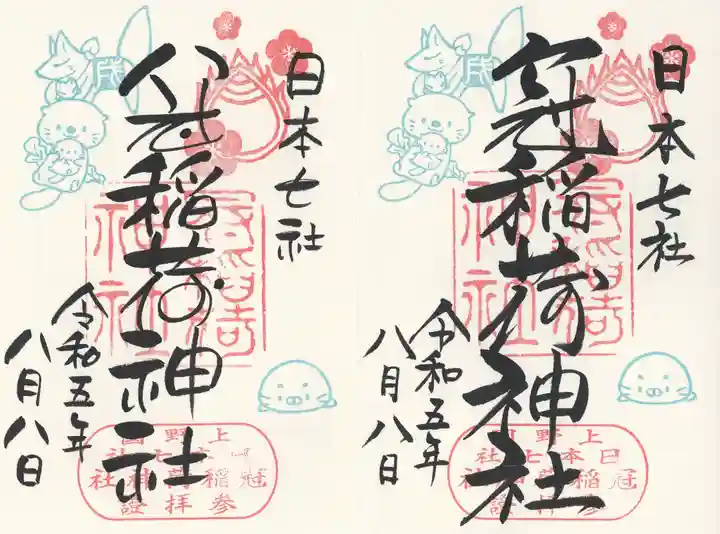 日本七社
冠稲荷神社
令和五年
八月八日
上野國
日本七社
冠稲荷神社
参拝證
日本七社
冠稲荷神社
令和五年
八月八日
上野國
日本七社
冠稲荷神社
参拝證